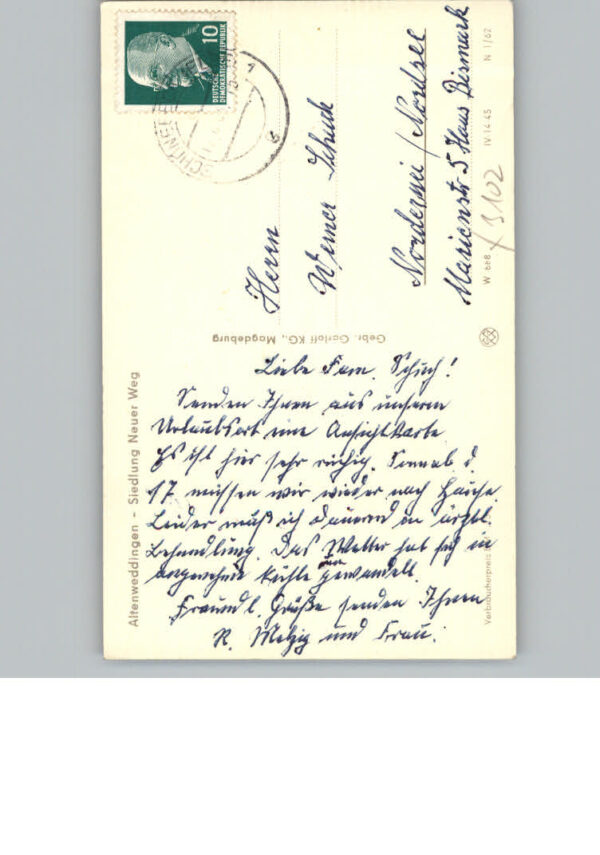 10
DEUTSCHE
DEMOKRATISCHE REPUBLIK
Herrn
Werner Schuch
Nordernei / Nordsee
Marienstr 5 Haus Bismark
3102
W 668 IV-14-45 N 1/62
Gebr. Garloff KG., Magdeburg
Altenweddingen - Siedlung Neuer Weg
Liebe Fam. Schuch!
Senden Ihnen aus unserem
Urlaubsort eine Ansichtkarte
Es ist hier sehr ruhig. Sonnab. d.
17. müssen wir wieder nach Hause.
Leider muß ich dauernd in ärztl.
Behandlung. Das Wetter hat sich in
angenehme Kühle gewandelt.
Freundl. Grüße senden Ihnen
R. Metzig und Frau.
Verbraucherpreis